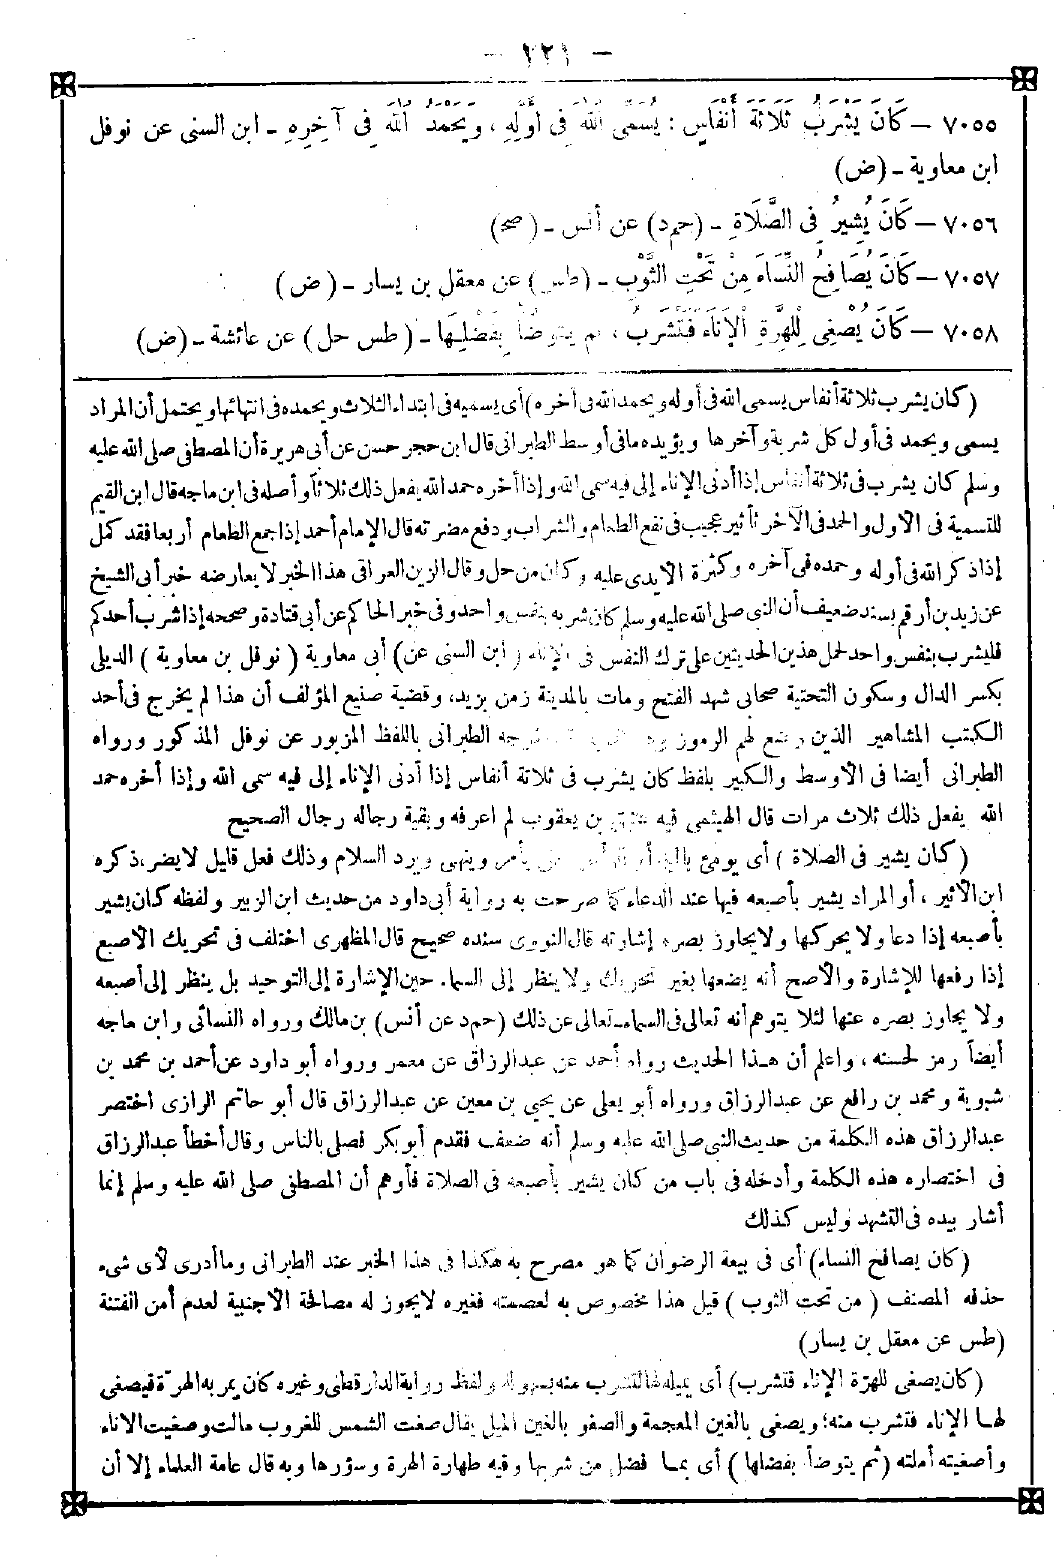 – ٢٢١ –
٧٠٥٥ – كَانَ يَشْرَبُ ثَلَاثَةَ أَنْفَاسٍ : يُسَمِّى اللهَ فِى أَوَّلِهِ ، وَيَحْمَدُ اللهَ فِى آخِرِهِ – ابن السنى عن نوفل
ابن معاوية – (ض)
٧٠٥٦ – كَانَ يُشِيرُ فِى الصَّلَاةِ – (حم د) عن أنس – (صح)
٧٠٥٧ – كَانَ يُصَافِحُ النِّسَاءَ مِنْ تَحْتِ الثَّوْبِ – (طس) عن معقل بن يسار – (ض)
٧٠٥٨ – كَانَ يُصْغِى لِلْهِرَّةِ الْإِنَاءَ فَتَشْرَبُ ، ثم يتوضأ بِفَضْلِهَا – (طس حل) عن عائشة – (ض)
(كان يشرب ثلاثة أنفاس يسمى الله فى أوله ويحمد الله فى آخره) أى يسميه فى ابتداء الثلاث ويحمده فى انتهائها ويحتمل أن المراد
يسمى ويحمد فى أول كل شربة وآخرها ويؤيده ما فى أوسط الطبرانى قال ابن حجر حسن عن أبى هريرة أن المصطفى صلى الله عليه
وسلم كان يشرب فى ثلاثة أنفاس إذا أدنى الإناء إلى فيه سمى الله وإذا أخره حمد الله يفعل ذلك ثلاثاً وأصله فى ابن ماجه قال ابن القيم
للتسمية فى الأول والحمد فى الآخر تأثير عجيب فى نفع الطعام والشراب ودفع مضرته قال الإمام أحمد إذا جمع الطعام أربعا فقد كمل
إذا ذكر الله فى أوله وحمده فى آخره وكثرة الأيدى عليه وكان من حل وقال الزين العراقى هذا الخبر لا يعارضه خبر أبى الشيخ
عن زيد بن أرقم بسند ضعيف أن النبى صلى الله عليه وسلم كان شربه بنفس واحد وفى خبر الحاكم عن أبى قتادة وصححه إذا شرب أحدكم
فليشرب بنفس واحد لحمل هذين الحديثين على ترك النفس فى الإناء (ابن السنى عن) أبى معاوية (نوفل بن معاوية) الديلى
بكسر الدال وسكون التحتية صحابى شهد الفتح ومات بالمدينة زمن يزيد، وقضية صنيع المؤلف أن هذا لم يخرج فى أحد
الكتب المشاهير الذين وضع لهم الرموز الطبرانى باللفظ المزبور عن نوفل المذكور ورواه
الطبرانى أيضا فى الأوسط والكبير بلفظ كان يشرب فى ثلاثة أنفاس إذا أدنى الإناء إلى فيه سمى الله وإذا أخره حمد
الله يفعل ذلك ثلاث مرات قال الهيثمى فيه بن يعقوب لم اعرفه وبقية رجاله رجال الصحيح
(كان يشير فى الصلاة) أى يومئ يأمر وينهى ويرد السلام وذلك فعل قليل لا يضر، ذكره
ابن الأثير ، أو المراد يشير بأصبعه فيها عند الدعاء كما صرحت به رواية أبى داود من حديث ابن الزبير ولفظه كان يشير
بأصبعه إذا دعا ولا يحركها ولا يجاوز بصره إشارته قال النووى سنده صحيح قال المظهرى اختلف فى تحريك الأصبع
إذا رفعها للإشارة والأصح أنه يضعها بغير تحريك ولا ينظر إلى السماء حين الإشارة إلى التوحيد بل ينظر إلى أصبعه
ولا يجاوز بصره عنها لئلا يتوهم أنه تعالى فى السماء – تعالى عن ذلك (حم د عن أنس) بن مالك ورواه النسائى وابن ماجه
أيضاً رمز لحسنه ، واعلم أن هذا الحديث رواه أحمد عن عبد الرزاق عن معمر ورواه أبو داود عن أحمد بن محمد بن
شبوية ومحمد بن رافع عن عبد الرزاق ورواه أبو يعلى عن يحيى بن معين عن عبد الرزاق قال أبو حاتم الرازى اختصر
عبد الرزاق هذه الكلمة من حديث النبى صلى الله عليه وسلم أنه ضعف فقدم أبو بكر فصلى بالناس وقال أخطأ عبد الرزاق
فى اختصاره هذه الكلمة وأدخله فى باب من كان يشير بأصبعه فى الصلاة فأوهم أن المصطفى صلى الله عليه وسلم إنما
أشار بيده فى التشهد وليس كذلك
(كان يصافح النساء) أى فى بيعة الرضوان كما هو مصرح به هكذا فى هذا الخبر عند الطبرانى وما أدرى لأى شىء
حذفه المصنف (من تحت الثوب) قيل هذا مخصوص به لعصمته فغيره لا يجوز له مصافحة الأجنبية لعدم أمن الفتنة
(طس عن معقل بن يسار)
(كان يصغى للهرة الإناء فتشرب) أى يميله لها لتشرب منه بسهولة ولفظ رواية الدارقطنى وغيره كان يمر به الهرة فيصغى
لها الإناء فتشرب منه؛ ويصغى بالغين المعجمة والصغو بالغين الميل يقال صغت الشمس للغروب مالت وصغيت الاناء
وأصغيته أملته (ثم يتوضأ بفضلها) أى بما فضل من شربها وفيه طهارة الهرة وسؤرها وبه قال عامة العلماء إلا أن